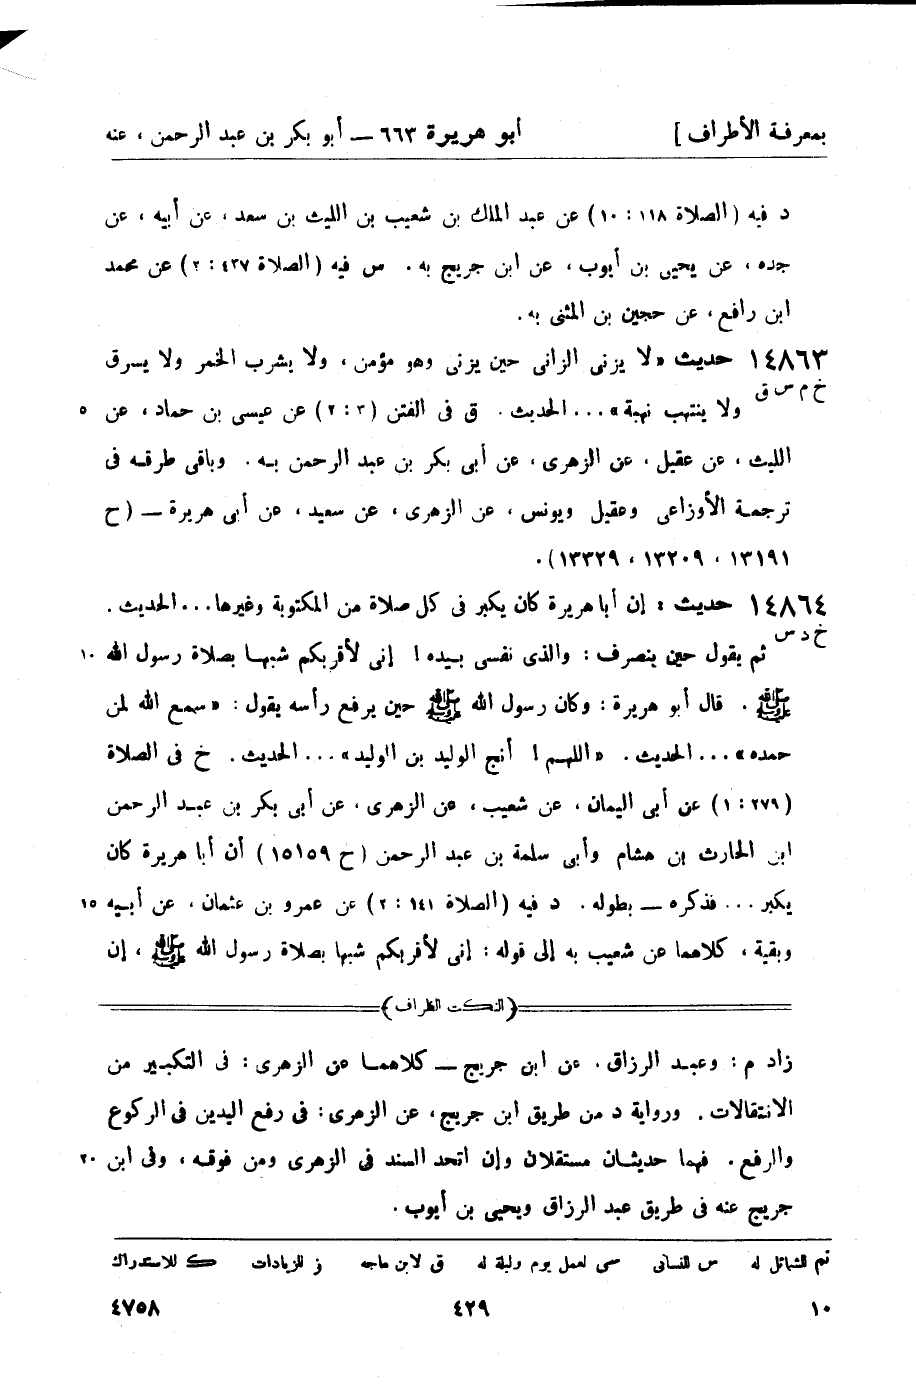 بمعرفة الأطراف ] أبو هريرة ٦٦٣ ــ أبو بكر بن عبد الرحمن ، عنه
د فيه (الصلاة ١١٨ : ١٠) عن عبد الملك بن شعيب بن الليث بن سعد ، عن أبيه ، عن
جده ، عن يحيى بن أيوب ، عن ابن جريج به . س فيه (الصلاة ٤٣٧ : ٢) عن محمد
ابن رافع ، عن حجين بن المثنى به .
١٤٨٦٣ حديث « لا يزنى الزانى حين يزنى وهو مؤمن ، ولا يشرب الخمر ولا يسرق
خ م س ق ولا ينتهب نهبة » ... الحديث . ق فى الفتن (٣ : ٢) عن عيسى بن حماد ، عن ٥
الليث ، عن عقيل ، عن الزهرى ، عن أبى بكر بن عبد الرحمن بـه . وباقى طرقـه فى
ترجمـة الأوزاعى وعقيل ويونس ، عن الزهرى ، عن سعيد ، عن أبى هريرة ــ (ح
١٣١٩١ ، ١٣٢٠٩ ، ١٣٣٢٩) .
١٤٨٦٤ حديث : إن أبا هريرة كان يكبر فى كل صلاة من المكتوبة وغيرها ... الحديث .
خ د س ثم يقول حين ينصرف : والذى نفسى بيـده ! إنى لأقربكم شبهـا بصلاة رسول الله ١٠
ﷺ . قال أبو هريرة : وكان رسول الله ﷺ حين يرفع رأسه يقول : « سمع الله لمن
حمده » ... الحديث . « اللهـم ! أنج الوليد بن الوليد » ... الحديث . خ فى الصلاة
(٢٧٩ : ١) عن أبى اليمان ، عن شعيب ، عن الزهرى ، عن أبى بكر بن عبـد الرحمن
ابن الحارث بن هشام وأبى سلمة بن عبد الرحمن (ح ١٥١٥٩) أن أبا هريرة كان
يكبر ... فذكره ــ بطوله . د فيه (الصلاة ١٤١ : ٢) عن عمرو بن عثمان ، عن أبـيه ١٥
وبقية ، كلاهما عن شعيب به إلى قوله : إنى لأقربكم شبها بصلاة رسول الله ﷺ ، إن
(النكت الظراف)
زاد م : وعبـد الرزاق . عن ابن جريج ــ كلاهمـا عن الزهرى : فى التكبـير من
الانتقالات . ورواية د من طريق ابن جريج ، عن الزهرى : فى رفع اليدين فى الركوع
والرفع . فهما حديثـان مستقلان وإن اتحد السند فى الزهرى ومن فوقـه ، وفى ابن ٢٠
جريج عنه فى طريق عبد الرزاق ويحيى بن أيوب .
تم للشمائل له س للنسائى سى لعمل يوم وليلة له ق لابن ماجه ز للزيادات ك للاستدراك
١٠ ٤٢٩ ٤٧٥٨